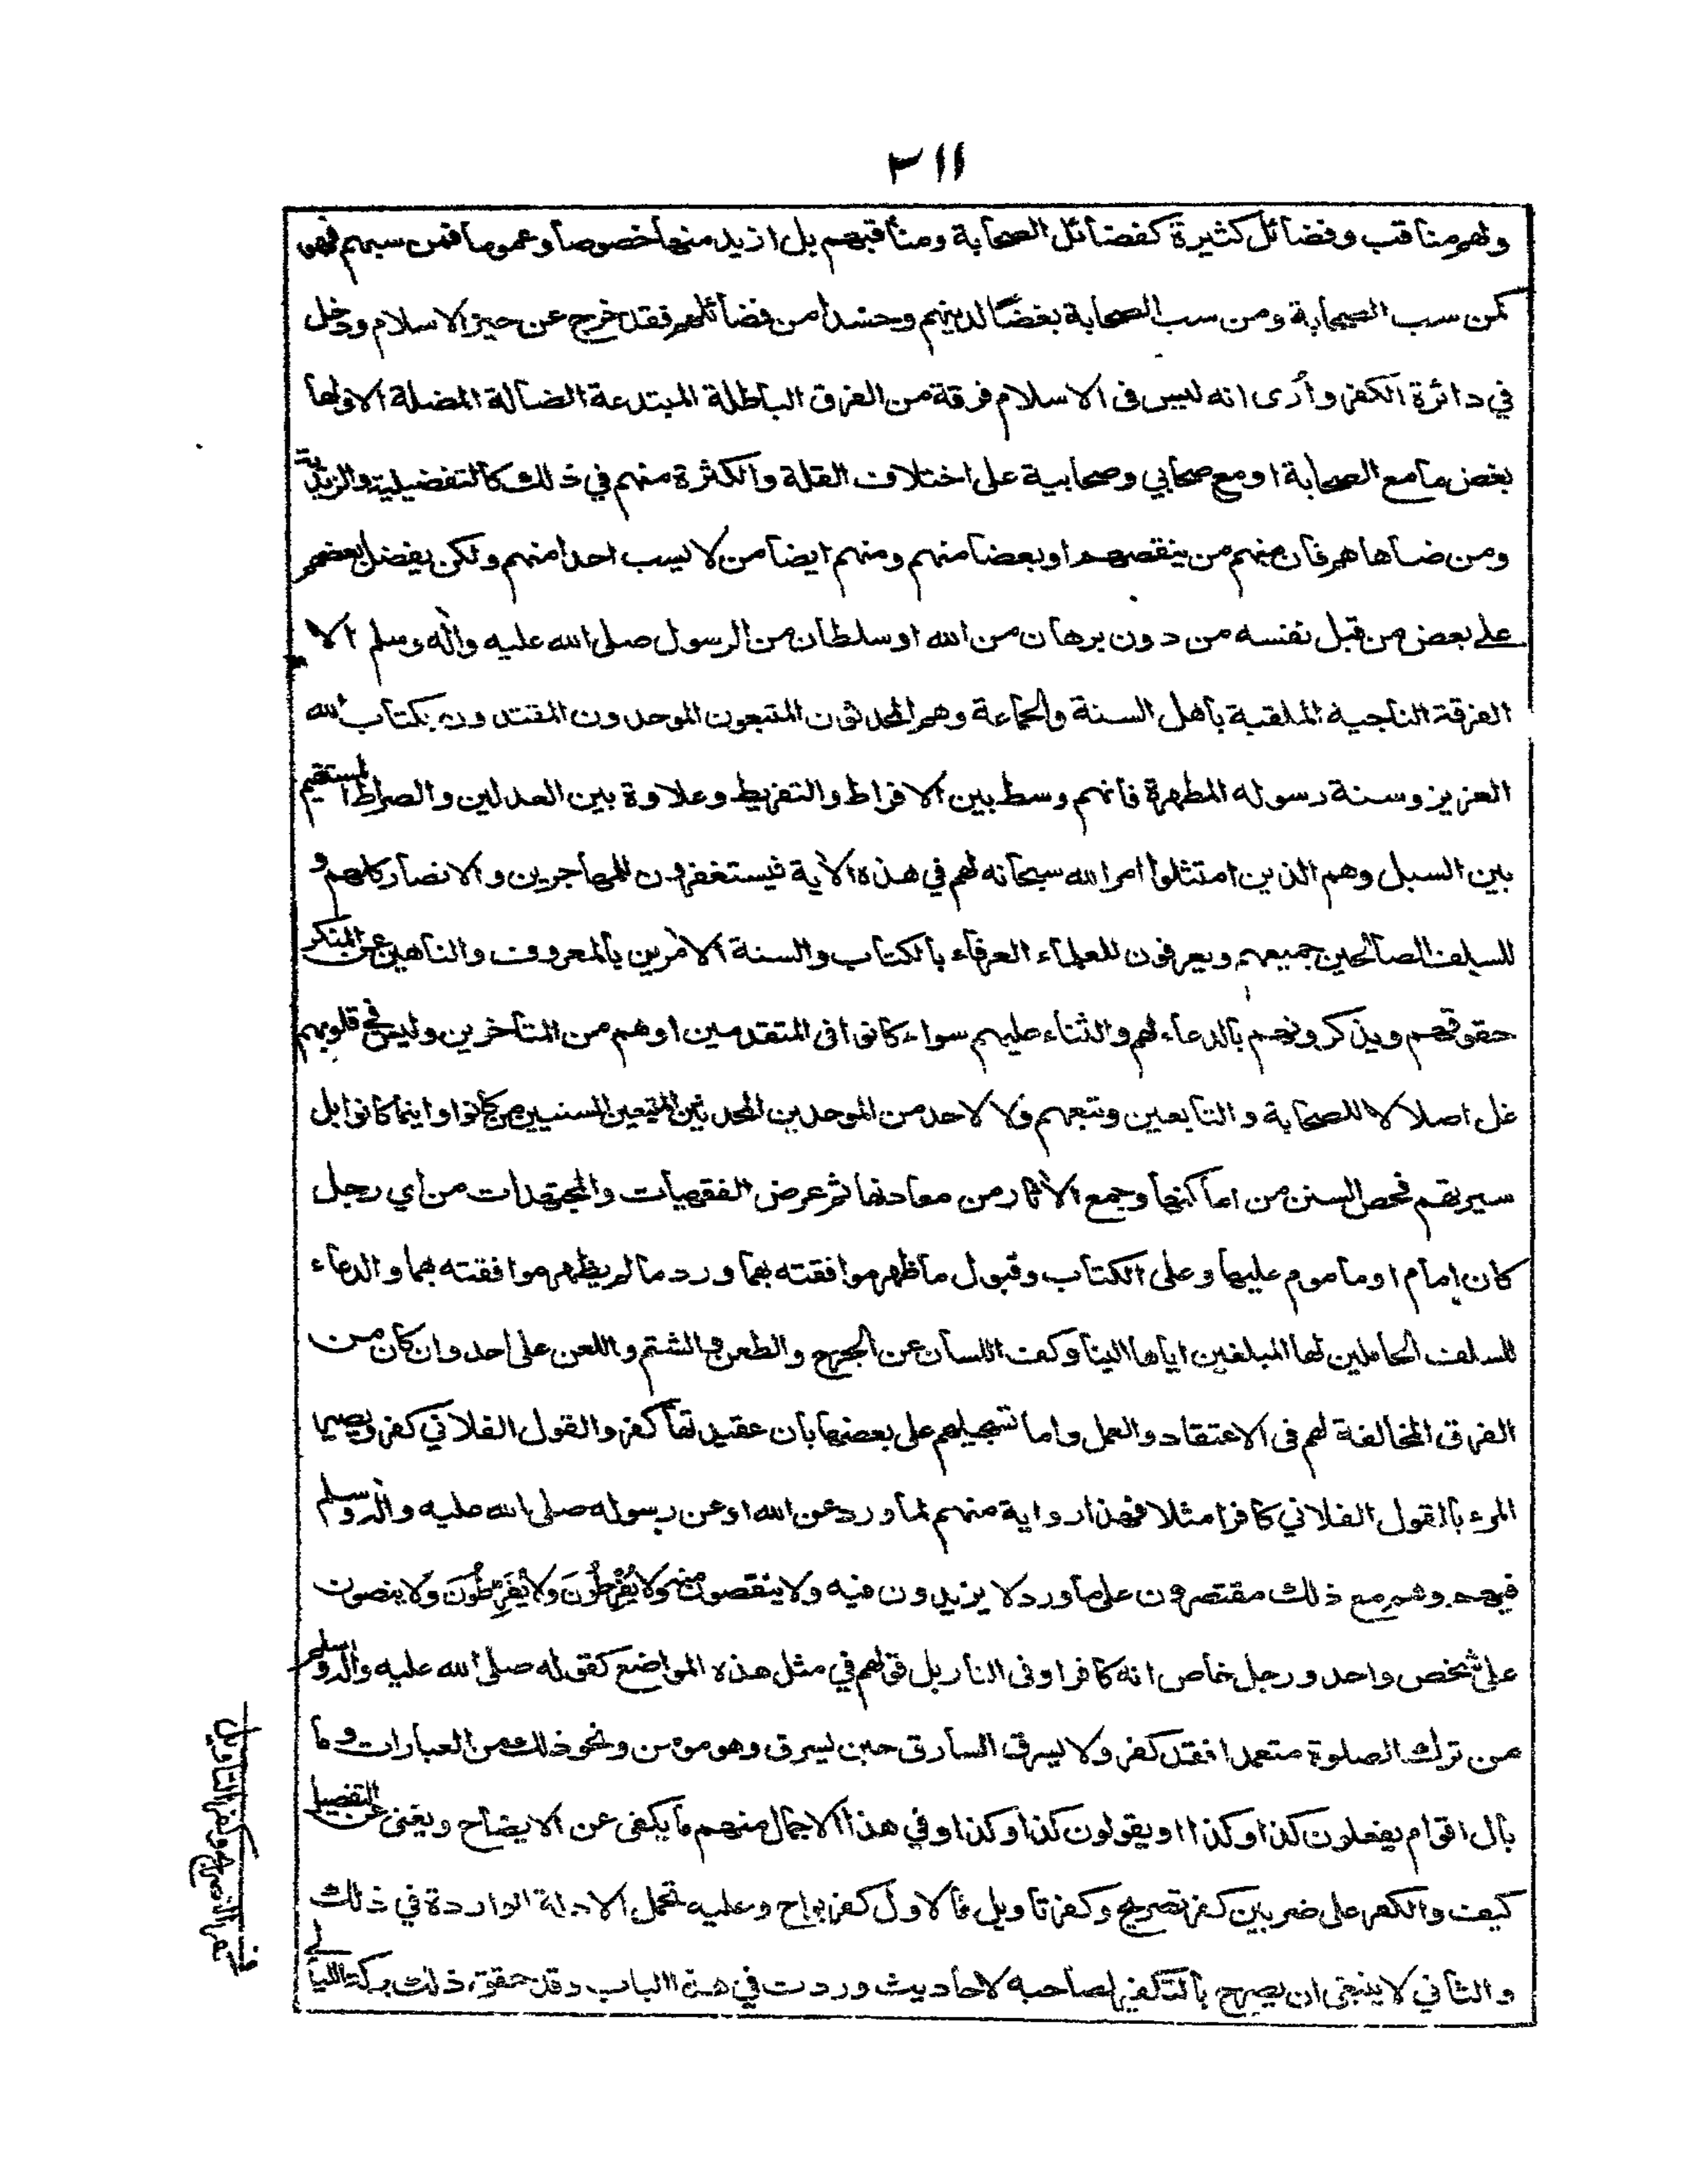 ٣١١
ولهم مناقب وفضائل كثيرة كفضائل الصحابة ومناقبهم بل ازيد منها خصوصا وعموما فمن سبهم فهو
كمن سب الصحابة ومن سب الصحابة بغضا لدينهم وحسدا من فضائلهم فقد خرج عن حيز الاسلام ودخل
في دائرة الكفر وأرى انه ليس فى الاسلام فرقة من الفرق الباطلة المبتدعة الضالة المضلة الا ولها
بغض ما مع الصحابة او مع صحابي وصحابية على اختلاف القلة والكثرة منهم في ذلك كالتفضيلية والزيدية
ومن ضاهاهم فان منهم من ينقصهم او بعضا منهم ومنهم ايضا من لا يسب احدا منهم ولكن يفضل بعضهم
على بعض من قبل نفسه من دون برهان من الله او سلطان من الرسول صلى الله عليه وآله وسلم الا
الفرقة الناجية الملقبة بأهل السنة والجماعة وهم المحدثون المتبعون الموحدون المقتدون بكتاب الله
العزيز وسنة رسوله المطهرة فانهم وسط بين الافراط والتفريط وعلاوة بين العدلين والصراط المستقيم
بين السبل وهم الذين امتثلوا امر الله سبحانه لهم في هذه الآية فيستغفرون للمهاجرين والانصار كلهم و
للسلف الصالحين جميعهم ويعرفون للعلماء العرفاء بالكتاب والسنة الآمرين بالمعروف والناهين عن المنكر
حقوقهم ويذكرونهم بالدعاء لهم والثناء عليهم سواء كانوا فى المتقدمين او هم من المتأخرين وليس في قلوبهم
غل اصلا لا للصحابة والتابعين وتبعهم ولا لاحد من الموحدين المحدثين المتبعين السنيين من كانوا واينما كانوا بل
سيرتهم فحص السنن من اماكنها وجمع الآثار من معادنها ثم عرض الفقهيات والمجتهدات من اي رجل
كان إمام او ماموم عليها وعلى الكتاب وقبول ما ظهر موافقته بهما ورد ما لم يظهر موافقته بهما والدعاء
للسلف الحاملين لها المبلغين اياها الينا وكف اللسان عن الجرح والطعن والشتم واللعن على احد وان كان من
الفرق المخالفة لهم فى الاعتقاد والعمل واما تسجيلهم على بعضها بان عقيدتها كفر والقول الفلاني كفر ويصير
المرء بالقول الفلاني كافرا مثلا فهذا رواية منهم لما ورد عن الله او عن رسوله صلى الله عليه وآله وسلم
فيهم وهم مع ذلك مقتصرون على ما ورد لا يزيدون فيه ولا ينقصون منه ولا يُفْرِطُونَ ولا يُفَرِّطُونَ ولا ينصون
على شخص واحد ورجل خاص انه كافر او فى النار بل قولهم في مثل هذه المواضع كقوله صلى الله عليه وآله وسلم
من ترك الصلوة متعمدا فقد كفر ولا يسرق السارق حين يسرق وهو مؤمن ونحو ذلك من العبارات وما
بال اقوام يفعلون كذا وكذا او يقولون كذا وكذا وفي هذا الاجمال منهم ما يكفى عن الايضاح ويغنى عن التفصيل
كيف والكفر على ضربين كفر تصريح وكفر تأويل فالاول كفر بواح وعليه تحمل الادلة الواردة في ذلك
والثاني لا ينبغى ان يصرح بالتكفير لصاحبه لاحاديث وردت في هذا الباب وقد حقق ذلك في